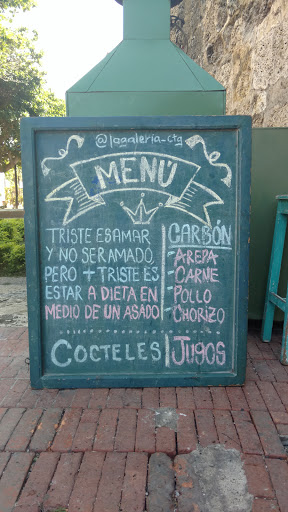 @lagaleria_ctg
MENU
TRISTE ES AMAR
Y NO SER AMADO,
PERO + TRISTE ES
ESTAR A DIETA EN
MEDIO DE UN ASADO
CARBÓN
- AREPA
- CARNE
- POLLO
- CHORIZO
COCTELES
JUGOS